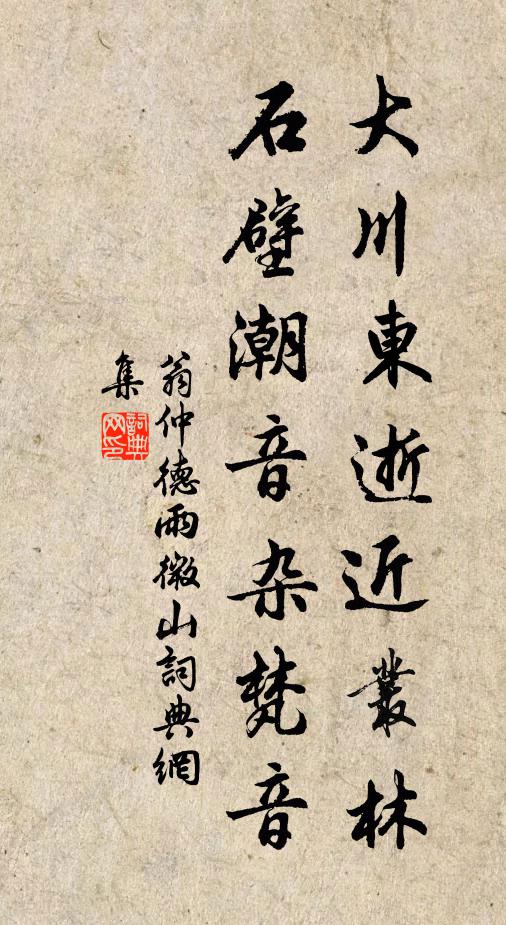 大川東逝近叢林
石壁潮音杂梵音
翁仲德兩微山詞典網
集
詞典
网印